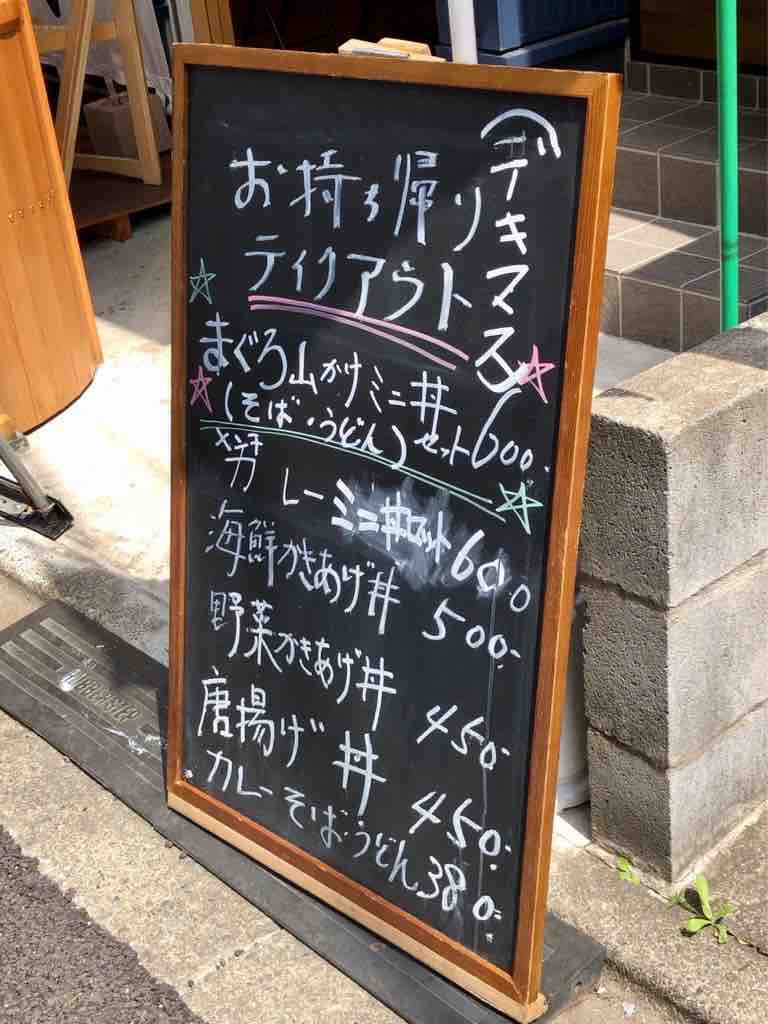 お持ち帰り
テイクアウト
デキマス
まぐろ山かけミニ丼
(そば・うどん)セット600.
メンチ
カレーミニ丼セット600
海鮮かきあげ丼 500.-
野菜かきあげ丼 450.-
唐揚げ丼 450.-
カレーそば・うどん380.-